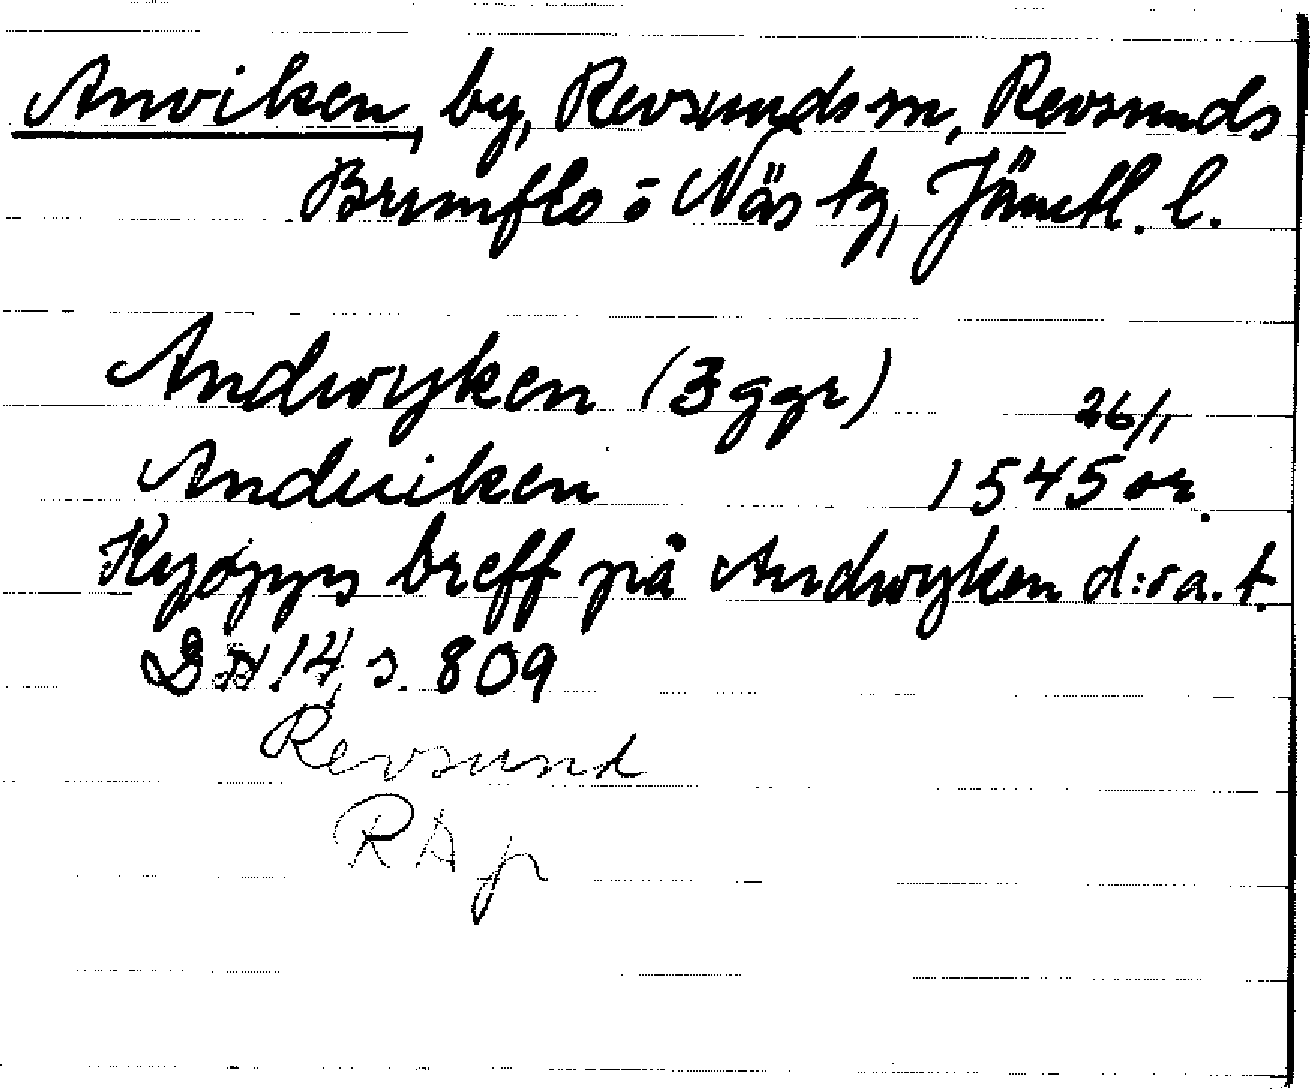 Anviken, by, Revsunds sn, Revsunds
Brunflo o Näs tg, Jämtl. l.
Andwyken (3 ggr)
26/1
Anduiken 1545 or.
Kyöpps breff på Andwyken d:o a. t.
14, s. 809
Revsund
RA p